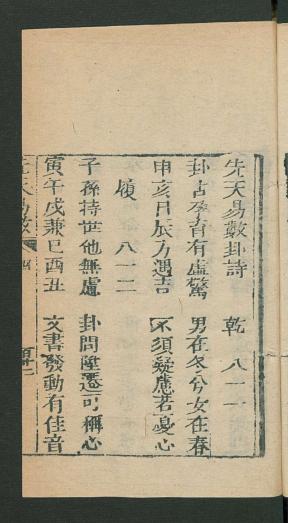 先天易數卦詩　乾　八一一
卦占孕育有虛驚　男在冬兮女在春
申亥日辰方遇吉　不須疑應若憂心
履　八一二
子孫持世他無慮　卦問陞遷可稱心
寅午戌兼巳酉丑　文書發動有佳音